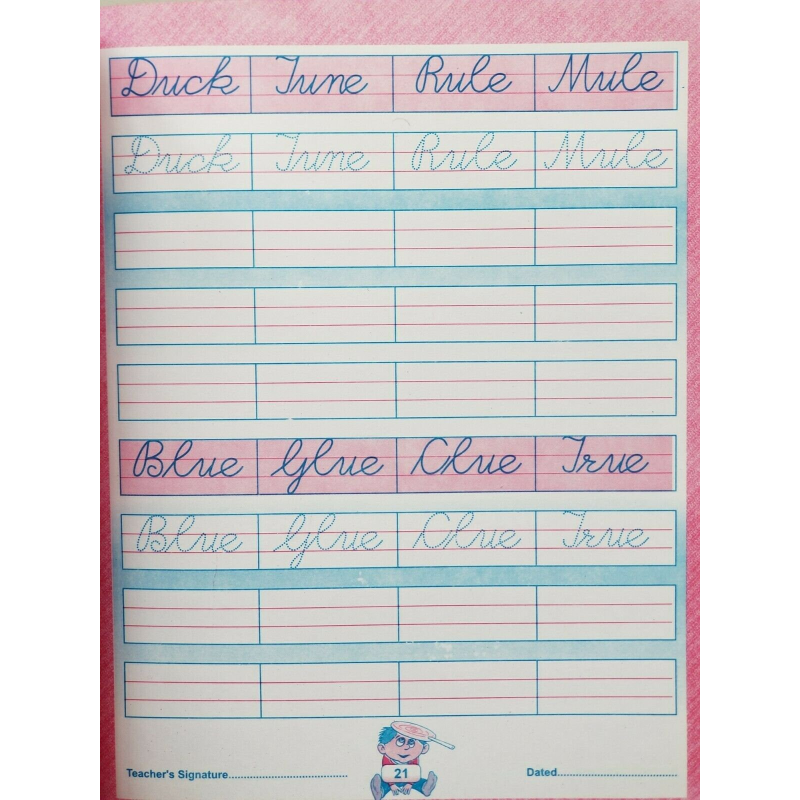 Duck Tune Rule Mule
Duck Tune Rule Mule
Blue Glue Clue True
Blue Glue Clue True
Teacher's Signature.................................... 21 Dated....................................